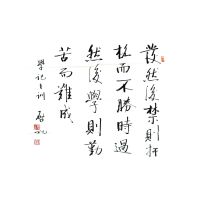 發然後禁則扞
格而不勝時過
然後學則勤
苦而難成
學記之訓 啟功